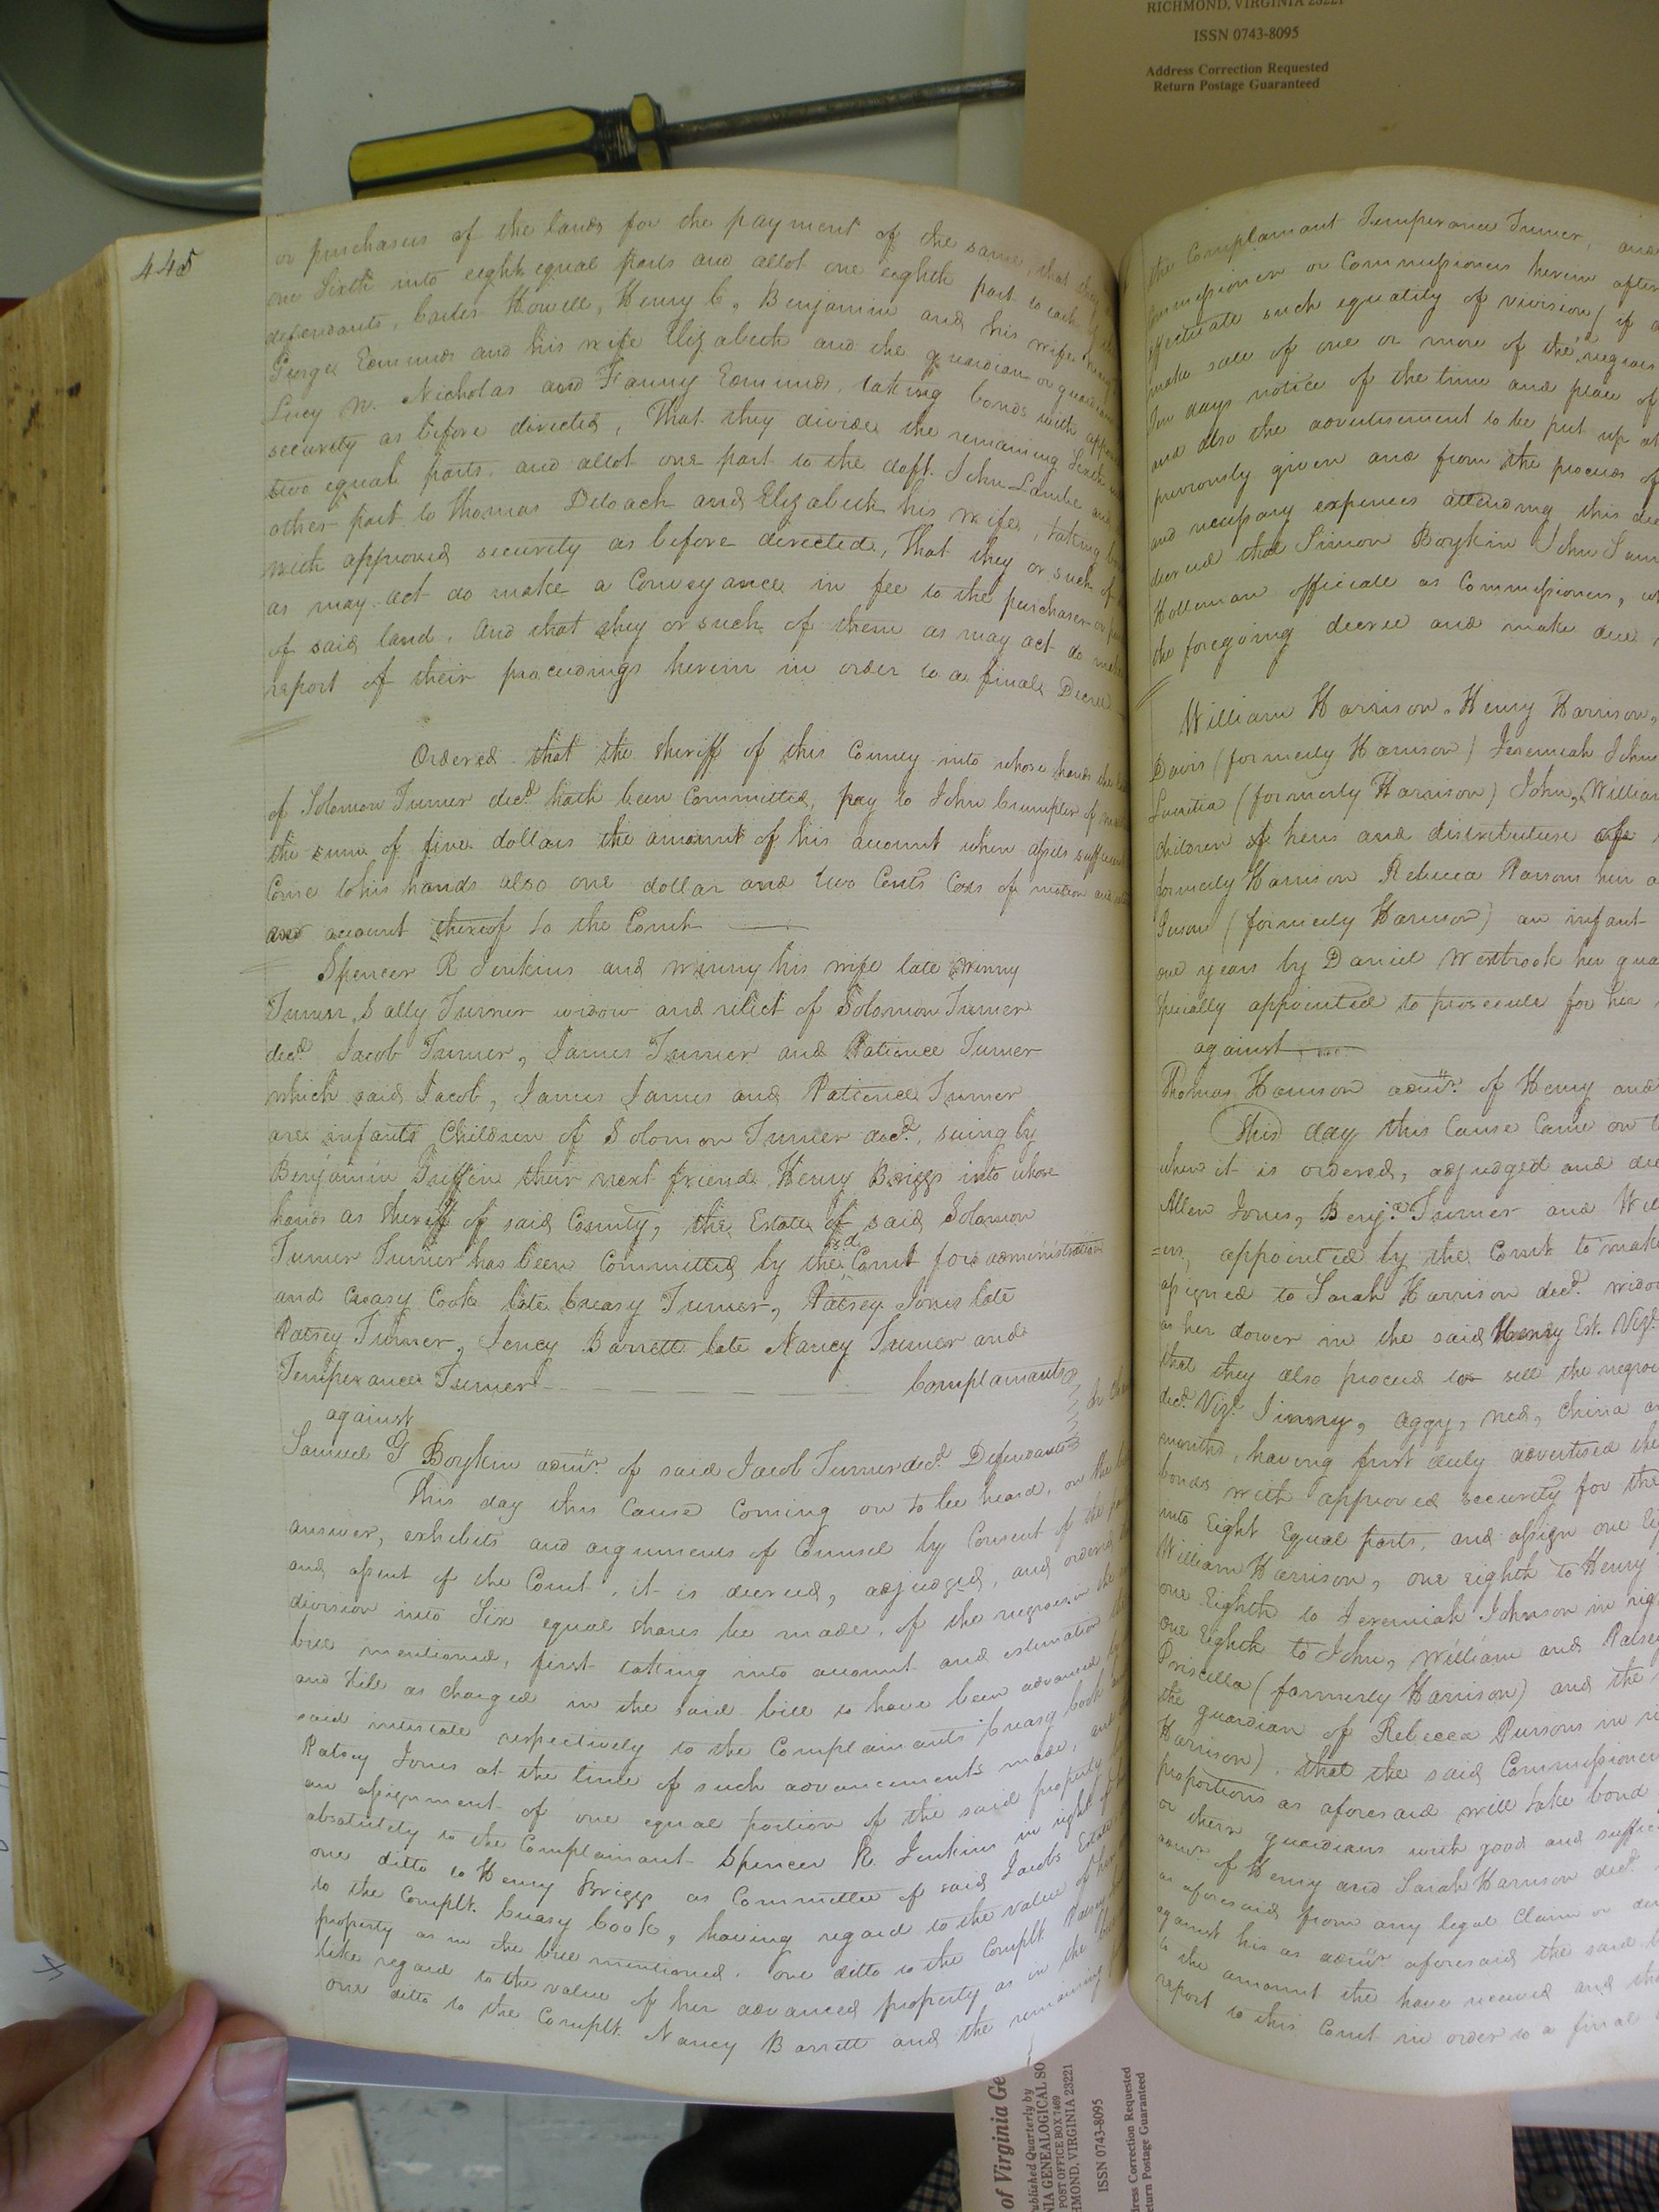 RICHMOND, VIRGINIA 23221
ISSN 0743-8095
Address Correction Requested
Return Postage Guaranteed
445
or purchasers of the lands for the payment of the same, that they
one Sixth into eight equal parts and allot one eighth part to each of the
defendants, Carter Howell, Henry C, Benjamin and his wife
George Edmunds and his wife Elizabeth and the guardian or guardians
Lucy N. Nicholas and Fanny Edmunds, taking bonds with approved
security as before directed, That they divide the remaining Sixth
two equal parts, and allot one part to the deft. John Lambe and
other part to Thomas Deloach and Elizabeth his wife, taking
with approved security as before directed, That they or such of
as may act do make a Conveyance in fee to the purchaser or
of said land. And that they or such of them as may act do make
report of their proceedings herein in order to a final Decree
Ordered that the Sheriff of this County into whose hands the
of Solomon Turner decd. hath been Committed, pay to John Crumpler of
the sum of five dollars the amount of his account when assets sufficient
Come to his hands also one dollar and two Cents Costs of motion and
and account thereof to the Court
Spencer R Jenkins and Winny his wife late Winny
Turner, Sally Turner widow and relict of Solomon Turner
decd. Jacob Turner, James Turner and Patience Turner
which said Jacob, James James and Patience Turner
are infants Children of Solomon Turner decd. suing by
Benjamin Griffin their next friend Henry Briggs into whose
hands as Sheriff of said County, the Estate of said Solomon
Turner Turner has been Committed by the sd. Court for administration
and Creasy Cook late Creasy Turner, Patsey Jones late
Patsey Turner, Jency Barrett late Nancy Turner and
Temperance Turner Complainants
against
Samuel G Boykin admr. of said Jacob Turner decd. Defendant
This day this Cause Coming on to be heard, on the bill
answer, exhibits and arguments of Counsel by Consent of the
and assent of the Court, it is decreed, adjudged, and ordered
division into Six equal shares be made, of the negroes in the
bill mentioned, first taking into account and estimation the
and till as charged in the said bill to have been advanced by
said intestate respectively to the Complainants Creasy Cook and
Patsey Jones at the time of such advancements made, and
an assignment of one equal portion of the said property
absolutely to the Complainant Spencer R. Jenkins in right of
one ditto to Henry Briggs as Committee of said Jacobs Estate
to the Complt. Creasy Cook, having regard to the value of her
property as in the bill mentioned. one ditto to the Complt. Patsey
like regard to the value of her advanced property as in the bill
one ditto to the Complt. Nancy Barrett and the remaining
the Complainant Temperance Turner, and
Commissioner or Commissioners herein after
effectuate such equality of division (if
make sale of one or more of the sd. negroes
Ten days notice of the time and place of
and also the advertisement to be put up at
previously given and from the proceeds of
and necessary expences attending this
decreed that Simon Boykin John
Holleman officiate as Commissioners,
the foregoing decree and make due
William Harrison, Henry Harrison,
Davis (formerly Harrison) Jeremiah John
Lucretia (formerly Harrison) John, William
children of heirs and distributees of
formerly Harrison Rebecca Parsons her
(formerly Harrison) an infant
one years by Daniel Westbrook her
specially appointed to prosecute for her
against
Thomas Harrison admr. of Henry and
This day this Cause Came on
when it is ordered, adjudged and
Allen Jones, Benja. Turner and
=ers, appointed by the Court to make
assigned to Sarah Harrison decd. widow
as her dower in the said Henry Est. Viz.
that they also proceed to sell the negroes
decd. Viz. Jinny, aggy, ned, China
months, having first duly advertised the
bonds with approved security for the
into Eight Equal parts, and assign one
William Harrison, one eighth to Henry
one Eighth to Jeremiah Johnson in
one Eighth to John, William and Patsey
Priscilla (formerly Harrison) and the
the guardian of Rebecca Parsons in
Harrison). that the said Commissioners
proportions as aforesaid will take bond
or their guardians with good and
admr. of Henry and Sarah Harrison decd.
as aforesaid from any legal Claim or
against his as admr. aforesaid the said
to the amount the have received and
report to this Court in order to a final
of Virginia Ge
ublished Quarterly by
NIA GENEALOGICAL SO
POST OFFICE BOX 7469
HMOND, VIRGINIA 23221
ISSN 0743-8095
dress Correction Requested
eturn Postage Guaranteed